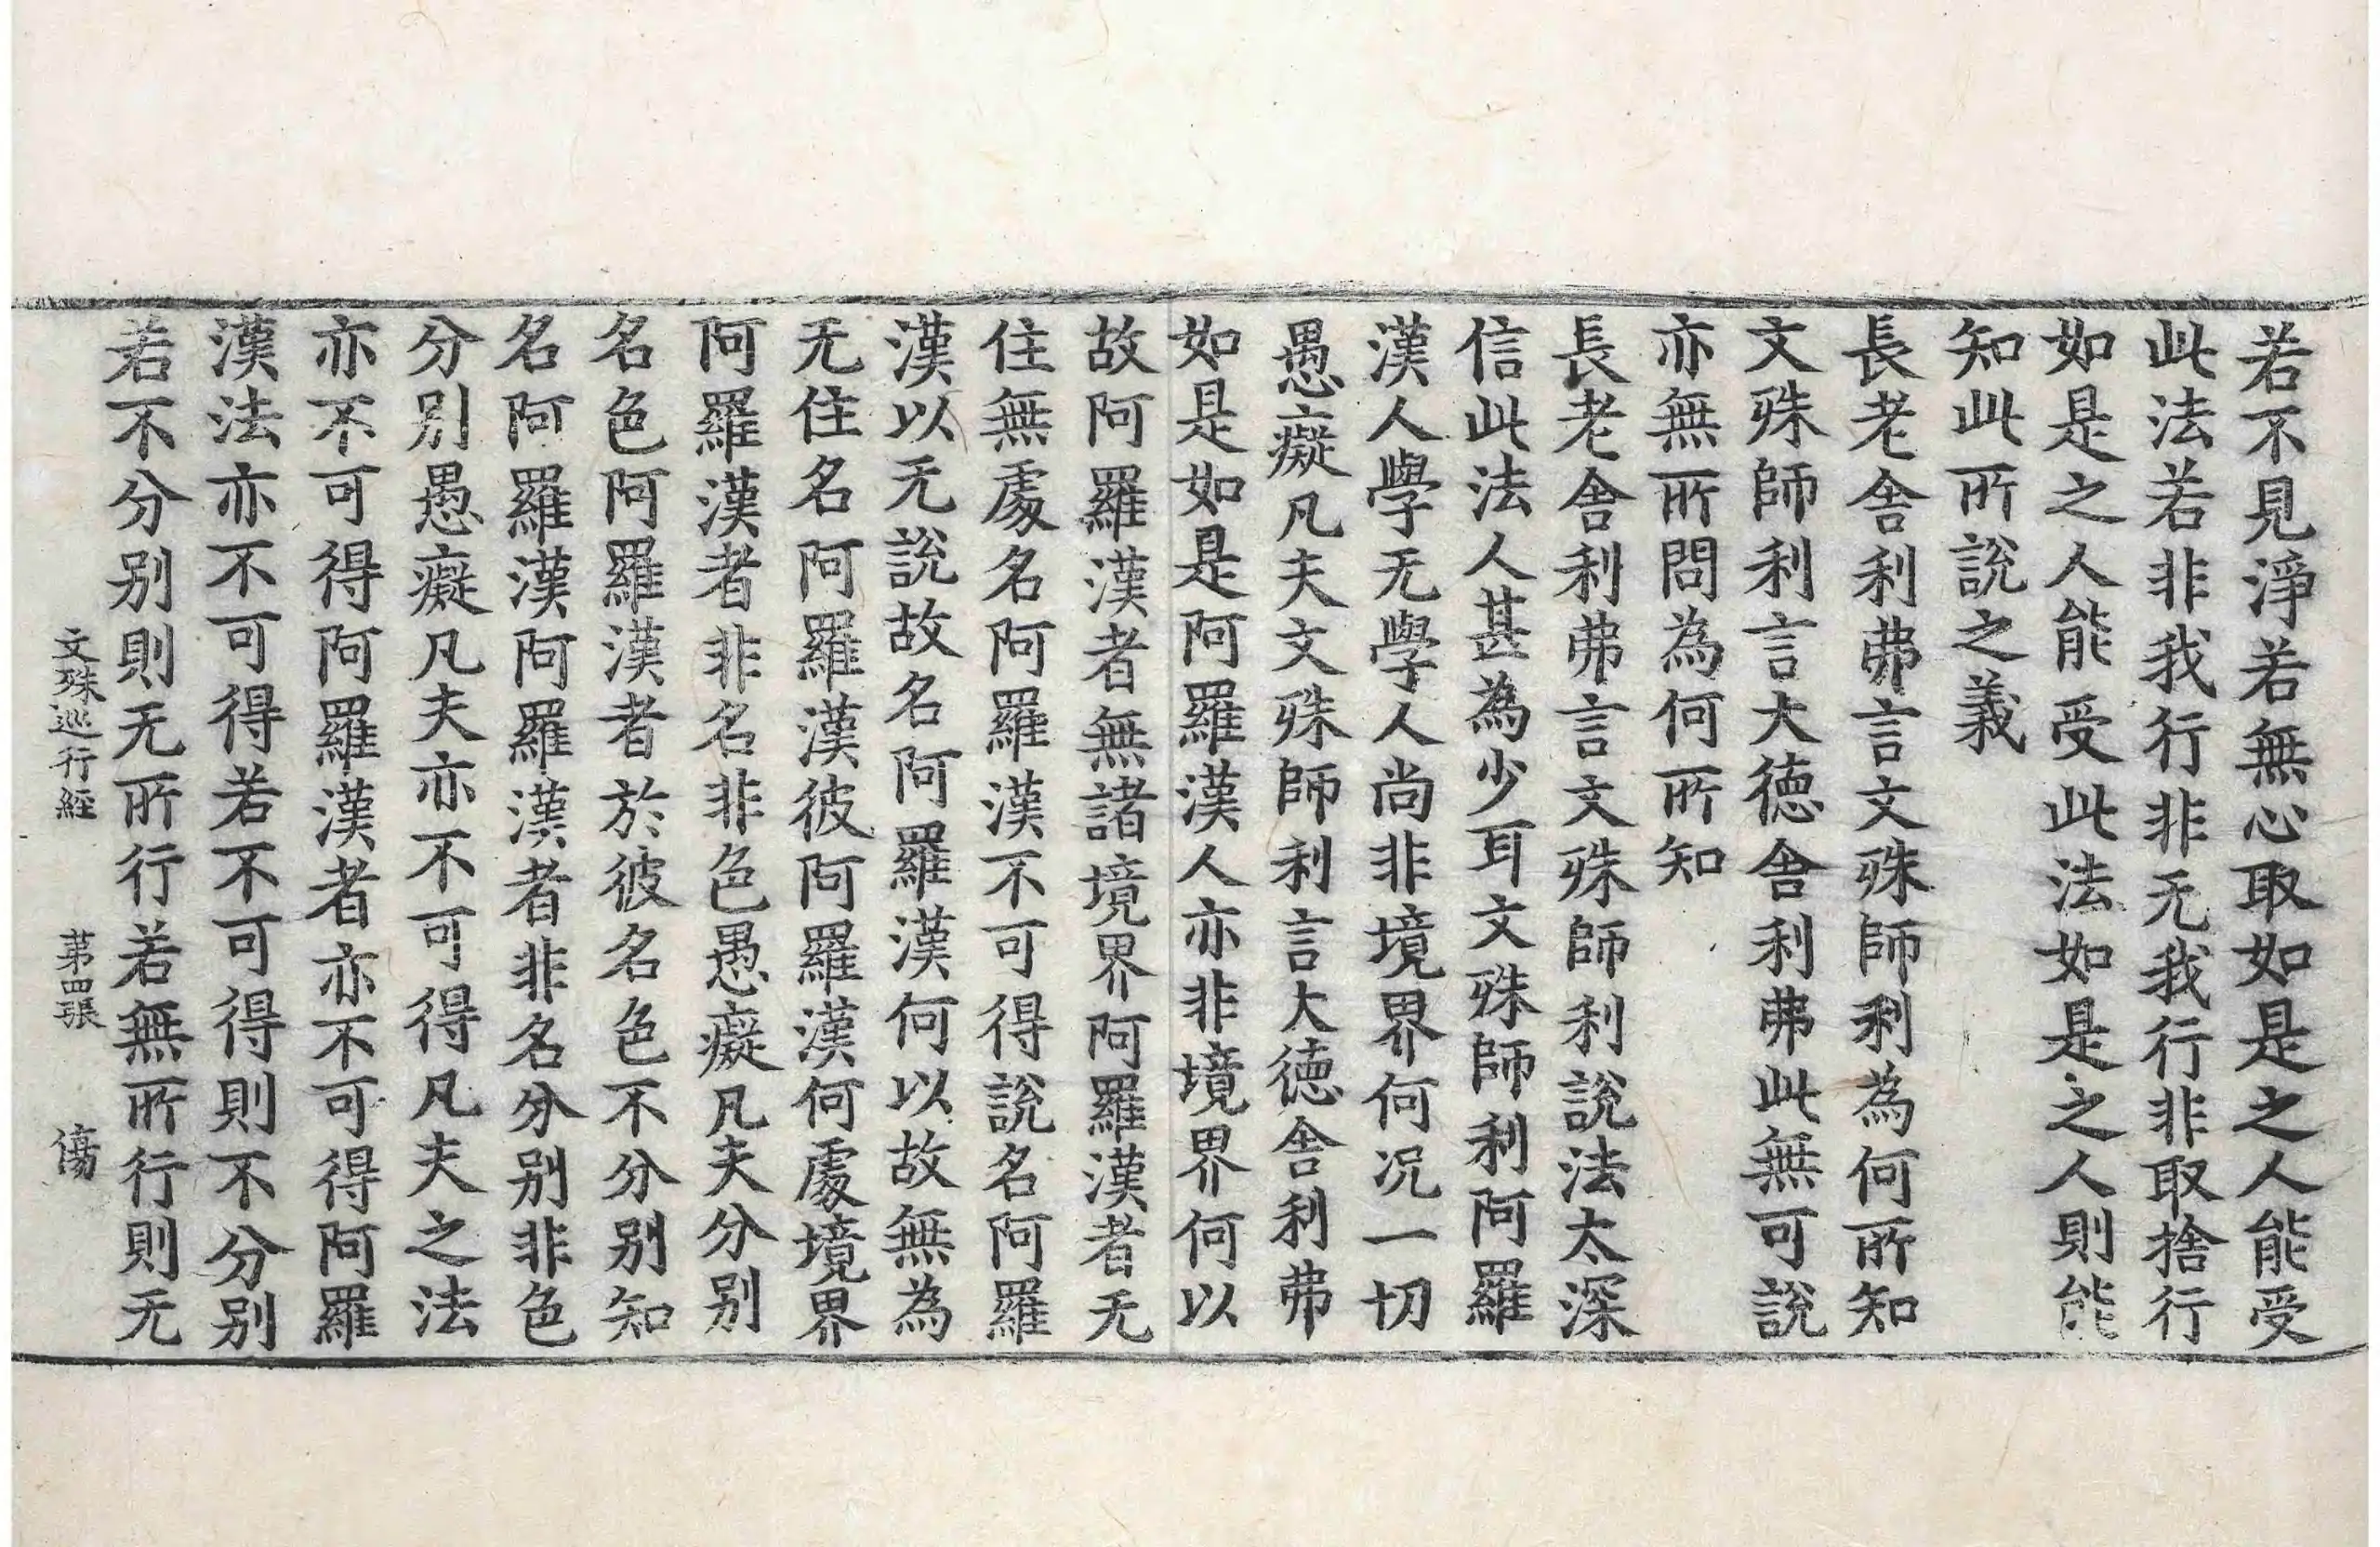 若不見淨若無心取如是之人能受
此法若非我行非无我行非取捨行
如是之人能受此法如是之人則能
知此所說之義
長老舍利弗言文殊師利為何所知
文殊師利言大德舍利弗此無可說
亦無所問為何所知
長老舍利弗言文殊師利說法太深
信此法人甚為少耳文殊師利阿羅
漢人學无學人尚非境界何況一切
愚癡凡夫文殊師利言大德舍利弗
如是如是阿羅漢人亦非境界何以
故阿羅漢者無諸境界阿羅漢者无
住無處名阿羅漢不可得說名阿羅
漢以无說故名阿羅漢何以故無為
无住名阿羅漢彼阿羅漢何處境界
阿羅漢者非名非色愚癡凡夫分別
名色阿羅漢者於彼名色不分別知
名阿羅漢阿羅漢者非名分別非色
分別愚癡凡夫亦不可得凡夫之法
亦不可得阿羅漢者亦不可得阿羅
漢法亦不可得若不可得則不分別
若不分別則无所行若無所行則无
文殊巡行經　第四張　傷